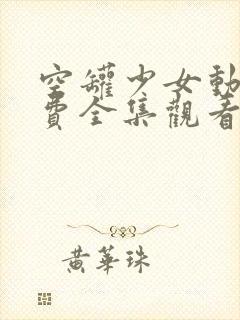 空罐少女動
費全集觀看
黃華珠